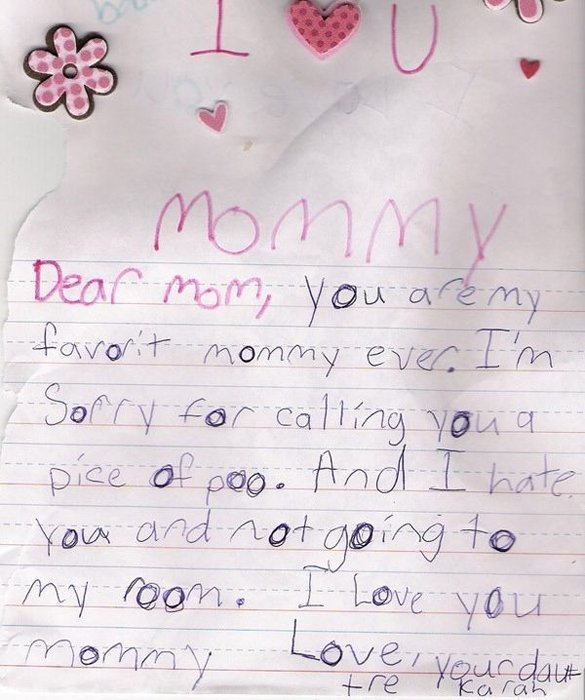 I U
Mommy
Dear mom, you are my
favorit mommy ever. I'm
Sorry for calling you a
pice of poo. And I hate
you and not going to
my room. I Love you
mommy Love, your daut
tre Karah